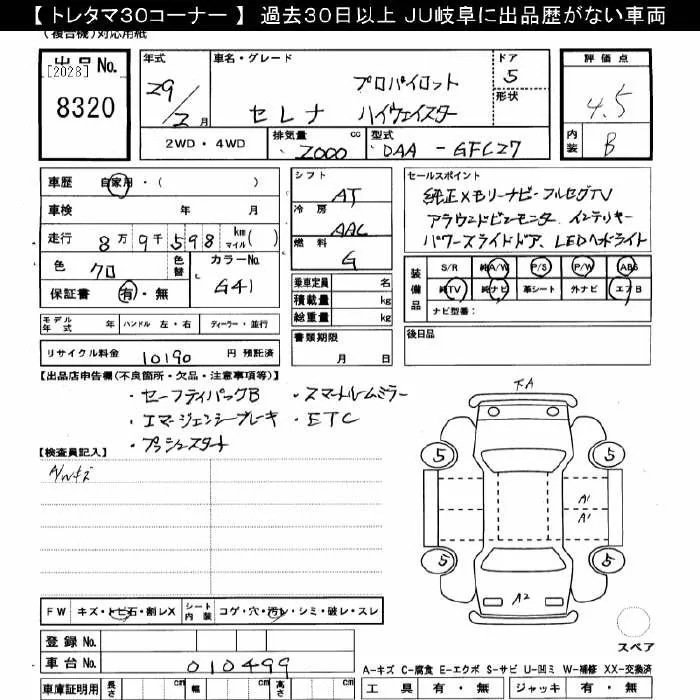 【 トレタマ30コーナー 】 過去30日以上 JU岐阜に出品歴がない車両
(複合機)対応用紙
出品No.
[2028]
8320
年式
29/2月
車名・グレード
プロパイロット
セレナ ハイウェイスター
ドア
5
形状
評価点
4.5
内装
B
2WD・4WD
排気量
2000 cc
型式
DAA - GFC27
車歴
自家用・( )
車検 年 月
走行 8万9千598 km マイル( )
色 クロ
色替
カラーNo.
G41
保証書 有・無
シフト
AT
冷房
AAC
燃料
G
乗車定員 名
積載量 kg
総重量 kg
書類期限
月 日
セールスポイント
純正メモリーナビ・フルセグTV
アラウンドビューモニター インテリキー
パワースライドドア、LEDヘッドライト
装備品
S/R 純A/W P/S P/W ABS
純TV 純ナビ 革シート 外ナビ エアB
ナビ型番:
後日品
モデル年式 年 ハンドル 左・右 ディーラー・並行
リサイクル料金 10190 円 預託済
【出品店申告欄(不良箇所・欠品・注意事項等)】
・セーフティパックB ・スマートルームミラー
・エマージェンシーブレーキ ・ETC
・プッシュスタート
【検査員記入】
A/Wキズ
下A
5 5
A1
A1
5 5
A2
スペア
FW キズ・トビ石・割レX シート内装 コゲ・穴・汚レ・シミ・破レ・スレ
登録No.
車台No. 010499
車庫証明用 長さ cm 幅 cm 高さ cm
A-キズ C-腐食 E-エクボ S-サビ U-凹ミ W-補修 XX-交換済
工具 有・無 ジャッキ 有・無